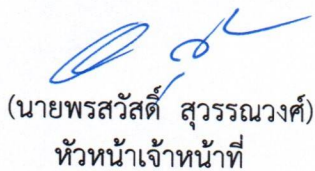 (นายพรสวัสดิ์ สุวรรณวงศ์)
หัวหน้าเจ้าหน้าที่